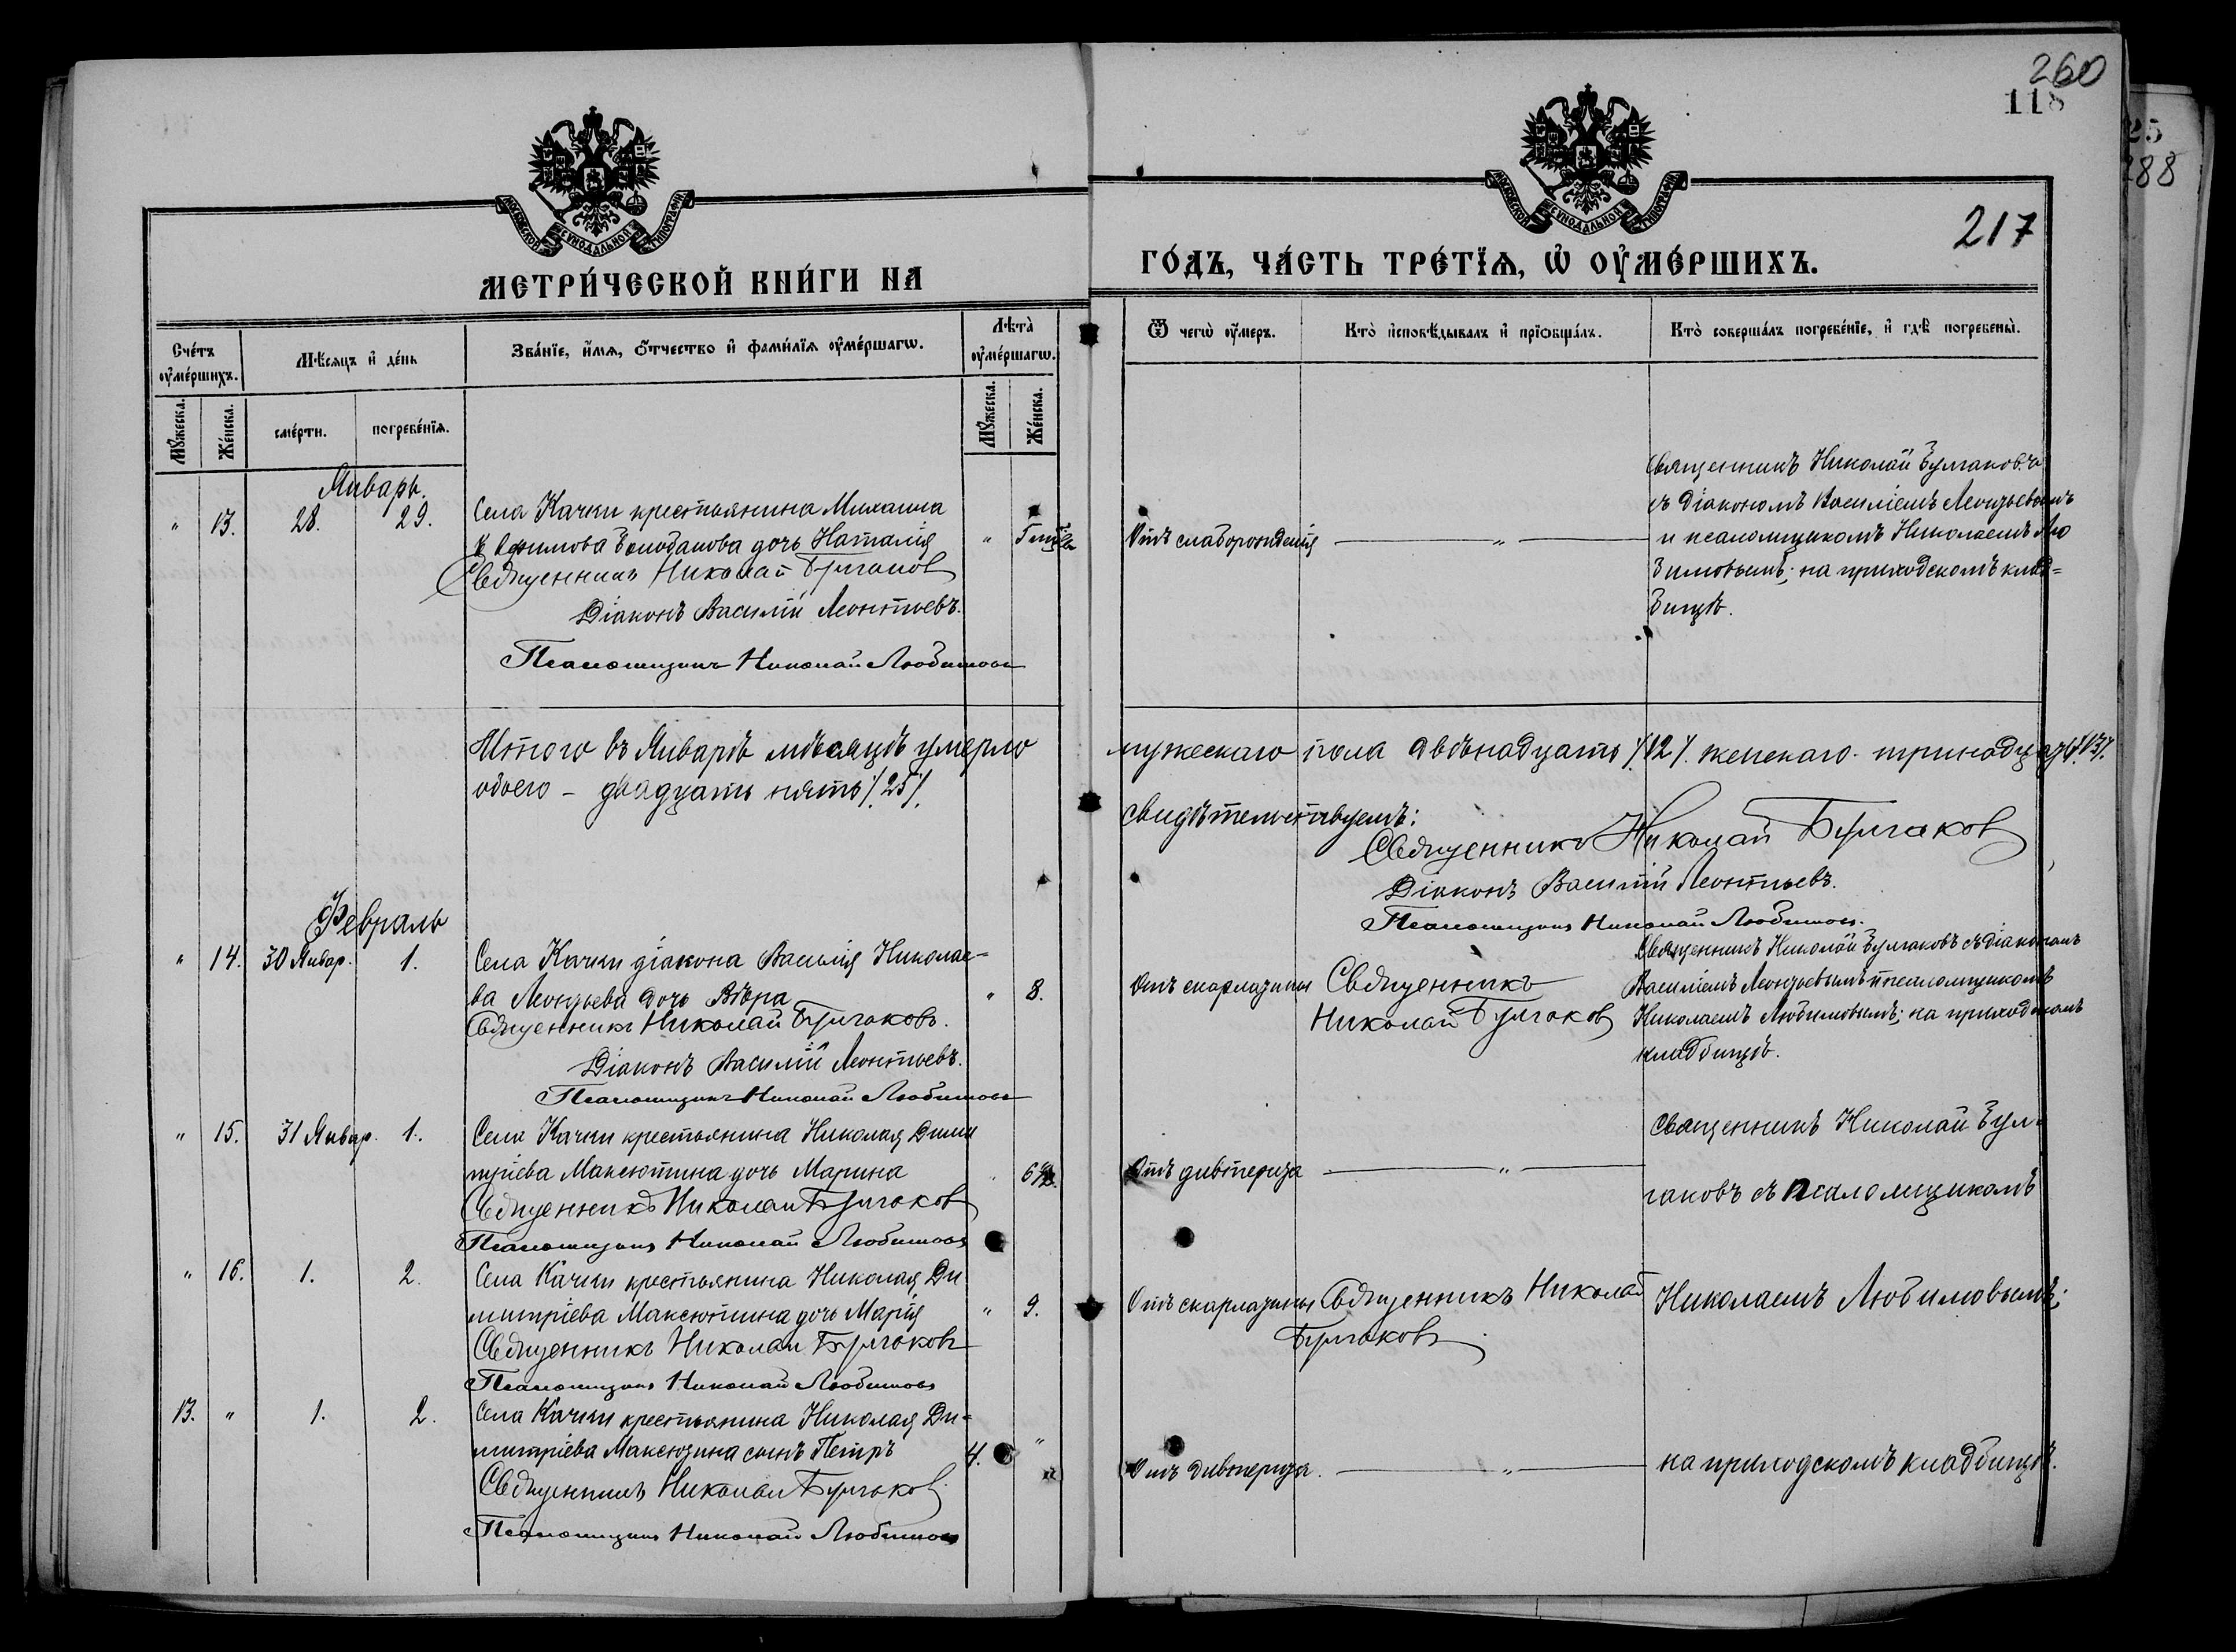 260
118
25
288
217
МОСКОВСКОЙ СѴНОДАЛЬНОЙ ТИПОГРАФІИ
МОСКОВСКОЙ СѴНОДАЛЬНОЙ ТИПОГРАФІИ
МЕТРИ́ЧЕСКОЙ КНИ́ГИ НА
ГО́ДЪ, ЧА́СТЬ ТРЕ́ТЇѦ, Ѡ ОУ҆МЕ́РШИХЪ.
Сче́тъ оу҆ме́ршихъ.
Мѣ́сяцъ и҆ де́нь
Зва́нїе, и҆́мѧ, ѻ҆́тчество и҆ фами́лїѧ оу҆ме́ршагѡ.
Лѣта̀ оу҆ме́ршагѡ.
Ѿ чегѡ̀ оу҆́меръ.
Кто̀ и҆сповѣ́дывалъ и҆ прїѻбща́лъ.
Кто̀ соверша́лъ погребе́нїе, и҆ гдѣ̀ погребены̀.
Мꙋ́жеска.
Же́нска.
сме́рти.
погребе́нїѧ.
Мꙋ́жеска.
Же́нска.
Январь.
" 13. 28. 29.
Села Качки крестьянина Михаила
Ефимова дочь Наталія
Священникъ Николай Булгаков
Діаконъ Василій Леонтьевъ.
Псаломщикъ Николай Любимовъ
"
Отъ слаборожденія
"
Священникъ Николай Булгаковъ
съ Діакономъ Василіемъ Леонтьевымъ
и псаломщикомъ Николаемъ Лю
бимовымъ; на приходскомъ клад=
бищѣ.
Итого въ Январѣ мѣсяцѣ умерло
мужескаго пола двѣнадцать /12/. женскаго тринадцать /13/.
обоего – двадцать пять /25/.
свидѣтельствуемъ:
Священникъ Николай Булгаков
Діаконъ Василій Леонтьевъ.
Псаломщикъ Николай Любимовъ.
Февраль
" 14. 30 Январ. 1.
Села Качки діакона Василія Николае-
ва Леонтьева дочь Вѣра
Священникъ Николай Булгаковъ.
Діаконъ Василій Леонтьевъ.
Псаломщикъ Николай Любимовъ
" 8.
Отъ скарлатины
Священникъ
Николай Булгаков
Священникъ Николай Булгаковъ съ діакономъ
Василіемъ Леонтьевымъ и псаломщикомъ
Николаемъ Любимовымъ; на приходскомъ
кладбищѣ.
" 15. 31 Январ. 1.
Села Качки крестьянина Николая Дими
тріева Максютина дочь Марина
Священникъ Николай Булгаков
Псаломщикъ Николай Любимовъ
Отъ дивтерита
"
Священникъ Николай Бул-
гаковъ съ псаломщикомъ
" 16. 1. 2.
Села Качки крестьянина Николая Ди
митріева Максютина дочь Марія
Священникъ Николай Булгаковъ
Псаломщикъ Николай Любимовъ
" 9.
Отъ скарлатины
Священникъ Николай
Булгаковъ
Николаемъ Любимовымъ;
13. " 1. 2.
Села Качки крестьянина Николая Ди=
митріева Максютина сынъ Петръ
Священникъ Николай Булгаков
Псаломщикъ Николай Любимовъ
4. "
Отъ дивтерита.
"
на приходскомъ кладбищѣ.